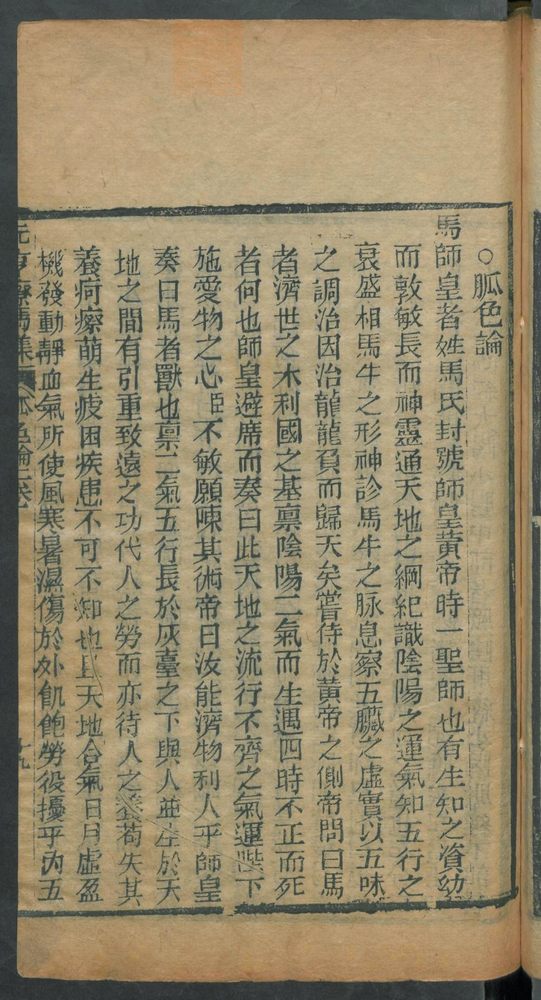 ○脈色論
馬師皇者姓馬氏封號師皇黃帝時一聖師也有生知之資幼
而敦敏長而神靈通天地之綱紀識陰陽之運氣知五行之
衰盛相馬牛之形神診馬牛之脉息察五臟之虛實以五味
之調治因治龍龍負而歸天矣嘗侍於黃帝之側帝問曰馬
者濟世之本利國之基禀陰陽二氣而生遇四時不正而死
者何也師皇避席而奏曰此天地之流行不齊之氣運陛下
施愛物之心臣不敏願陳其術帝曰汝能濟物利人乎師皇
奏曰馬者獸也禀二氣五行長於灰臺之下與人並生於天
地之間有引重致遠之功代人之勞而亦待人之養苟失其
養疴瘵萌生疲困疾患不可不知也且天地合氣日月虛盈
機發動靜血氣所使風寒暑濕傷於外飢飽勞役擾乎內五
元亨療馬集 脈色論一卷 十九